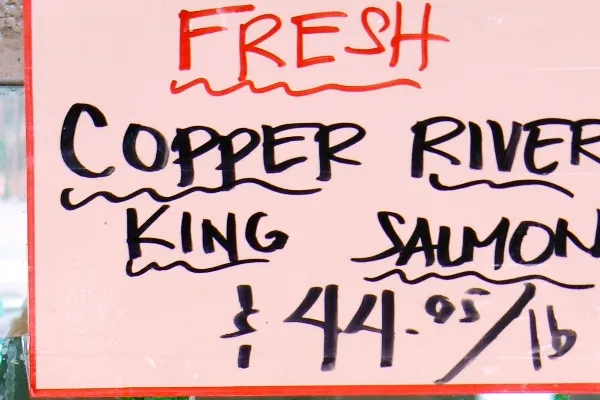 FRESH
COPPER RIVER
KING SALMON
$44.95/lb